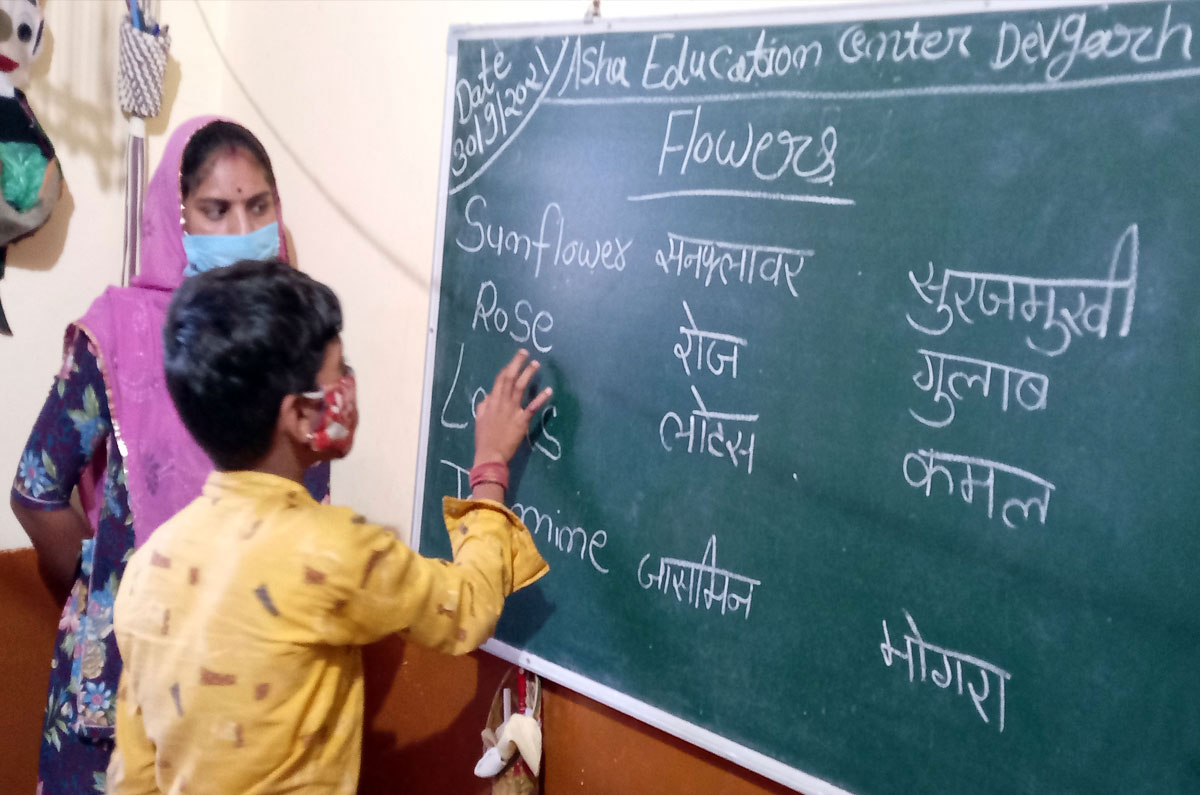 Date
30/9/2021
Asha Education Center Devgarh
Flowers
Sunflower सनफ्लावर सुरजमुखी
Rose रोज गुलाब
लोटस कमल
जासमिन मोगरा